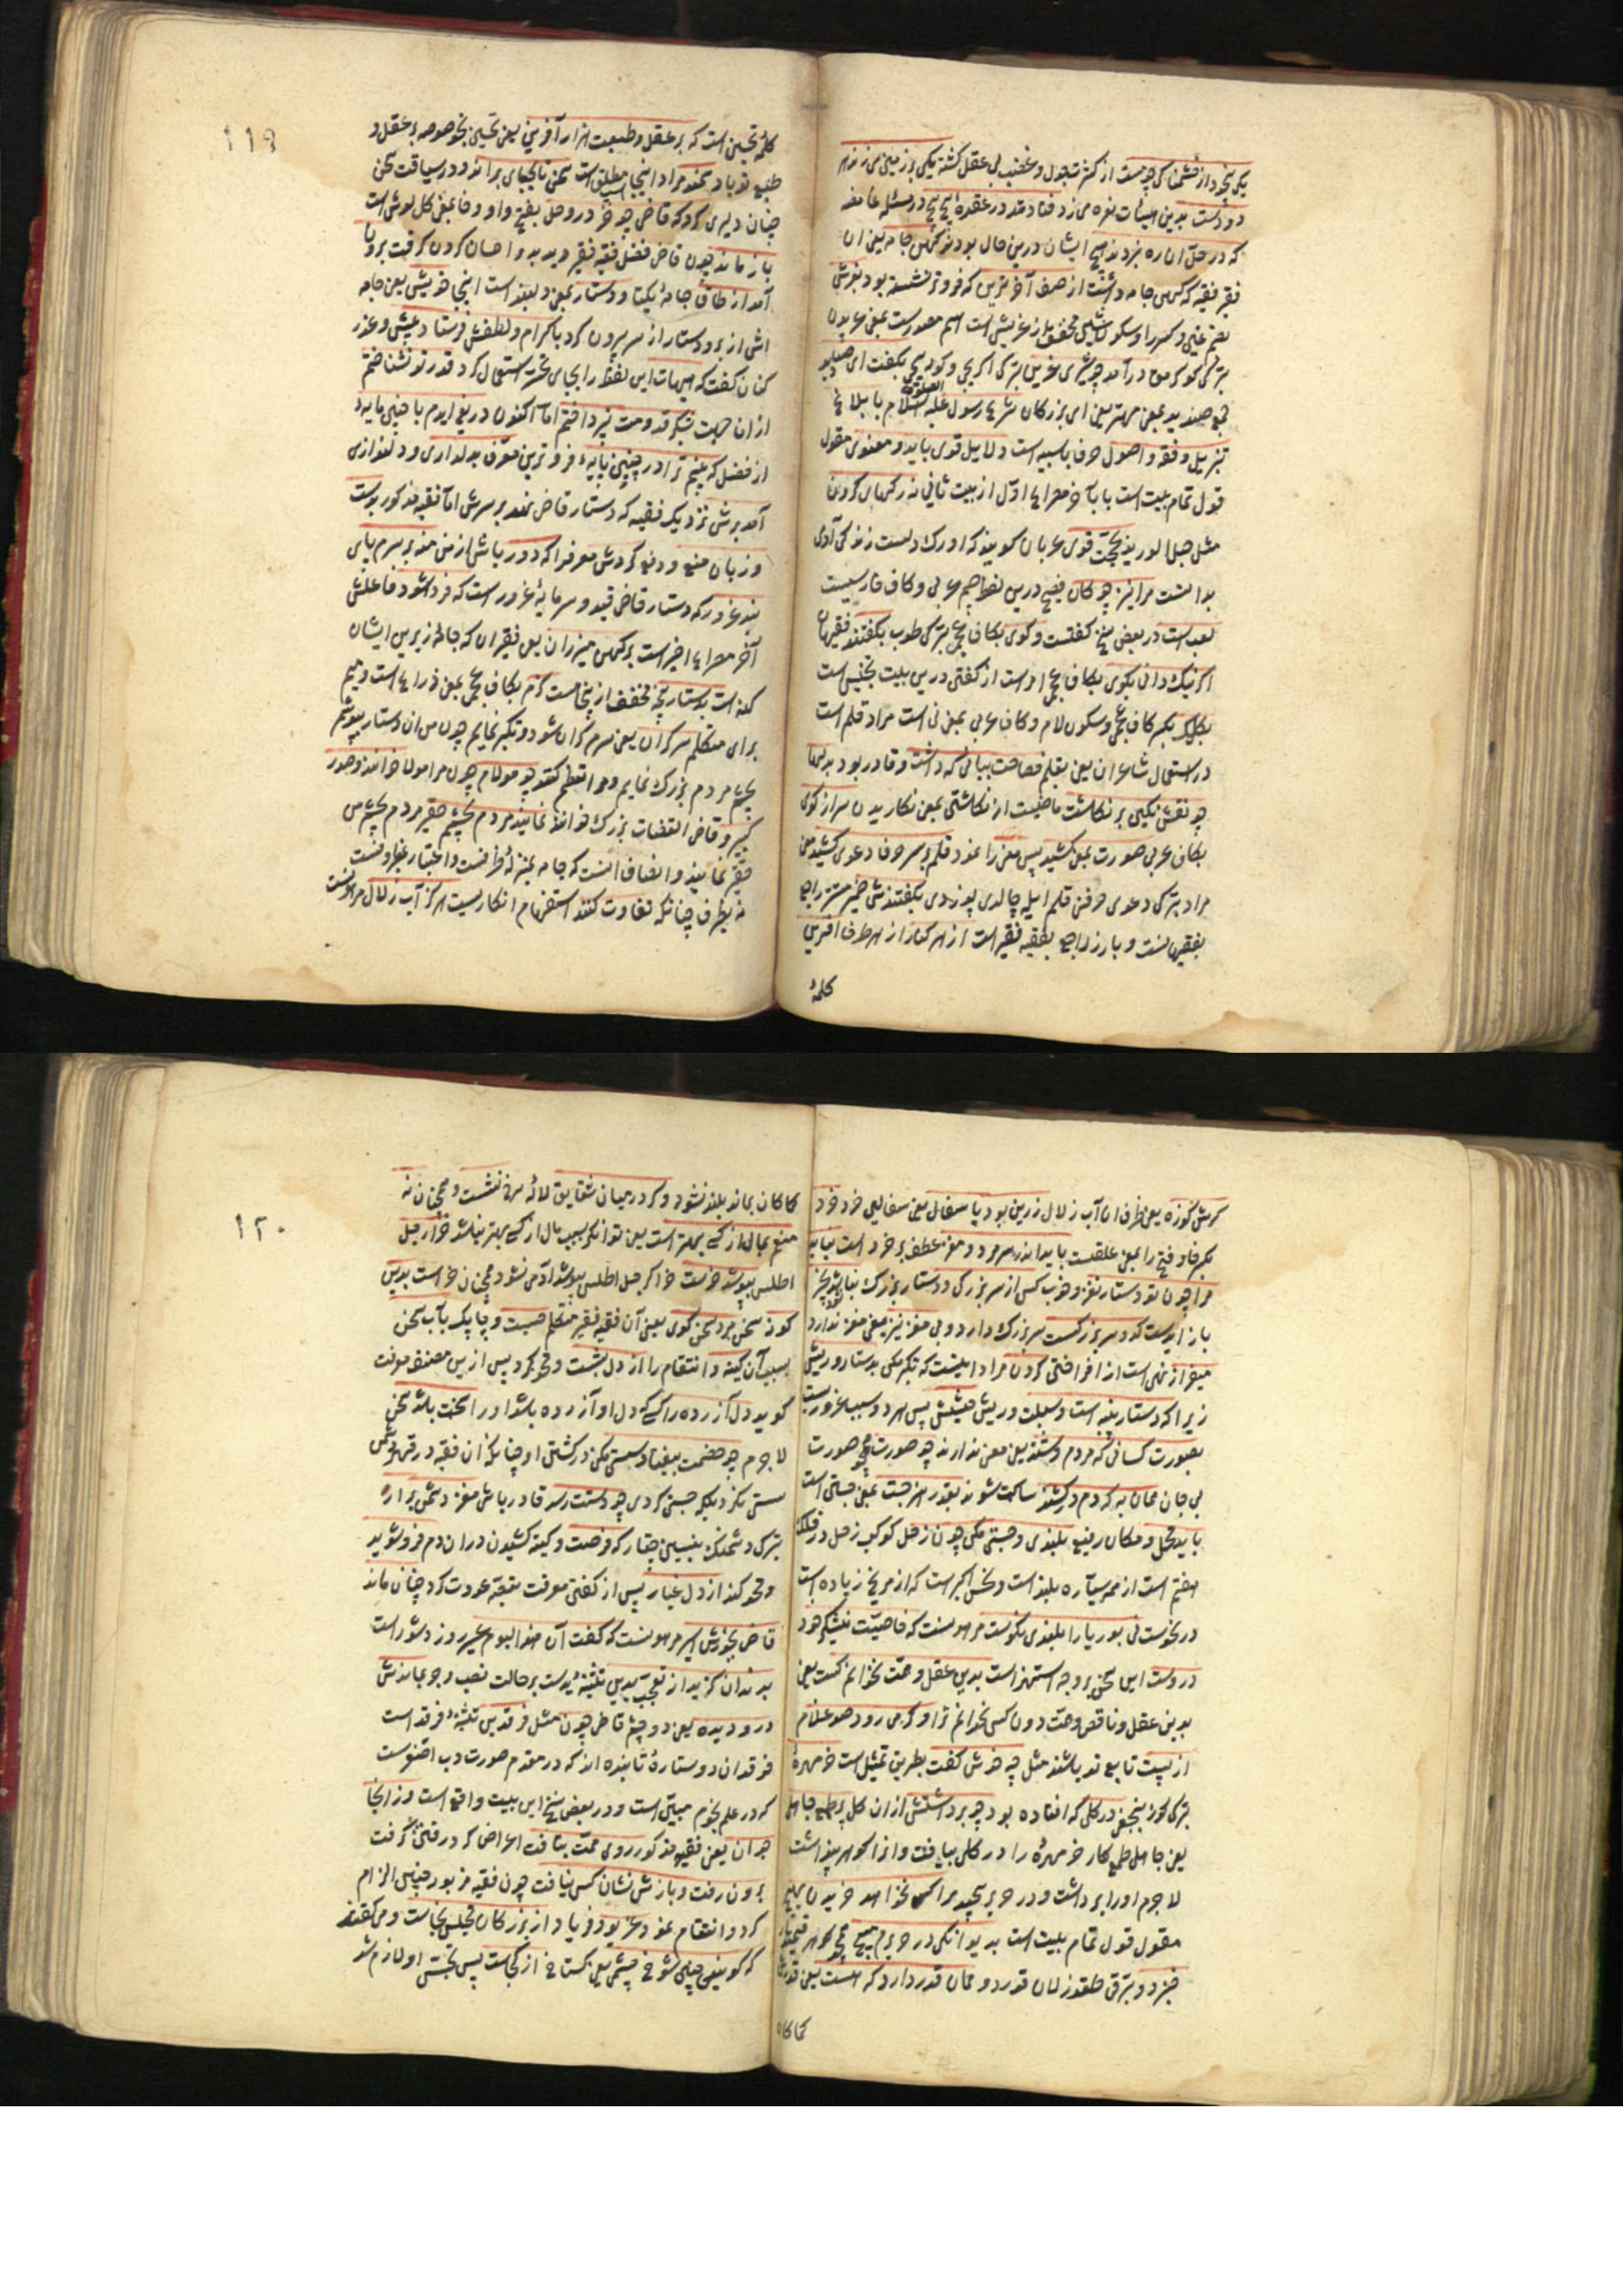 یکی بیخود از خشمناکی چو مست از کثرت جدل و غضب بی عقل گشته یکی بر زمین می زند هر
دو دست بدین هیئات نعره می زد فتادند در عقده پیچ پیچ در مسئله غامضه
که در حل آن ره نبردند هیچ ایشان درین حال بودند کهن جامه یعنی آن
فقیر فقیه که کهن جامه داشت از صف آخرترین که فروتر نشسته بود بغرش
بترکی کوکره مق درآمد چو شیری عرین بترکی بگفت ای صنادید
جمع صندید بمعنی مهتر یعنی ای بزرکان شرع رسول علیه الصلوة السلام بابلاغ
تنزیل و فقه و اصول دلایل قوی باید و معنوی مقول
قول تمام بیت است با آخر مصراع اول از بیت ثانی نه رکهای کردن
مثل حبل الورید بحجت قوی عربان کویند که اورک زندکی آدمی
مرا نیز چوکان درین لفظ جیم عربی و کاف فارسیست
در بعضی نسخ کفتست و کوی بکاف عجمی بترکی طوب بکفتند فقیهان
اکر نیک دانی بکوی بکاف عجمی امر است از کفتن درین بیت تجنیس است
بکلک بکسر کاف عجمی و سکون لام و کاف عربی بمعنی نی است مراد قلم است
در استعمال شاعران یعنی بقلم فصاحت بیانی که داشت و قادر بود بدلها
چو نقش نکین بر نکاشت ماضیست از نکاشتن بمعنی نکاریدن سر از کوی
بکاف عربی صورت بمعنی کشید پس معنی را نمود قلم بر سر حرف دعوی کشید یعنی
مراد بترکی دعوی حرفن قلم ایله چالدی بوزدی بکفتندش ضمیر مستتر راجع
بفقیهانست و بارز راجع بفقیه فقیر است از هر کنار از هر طرف آفرین
کلمۀ
۱۱۹
کلمۀ تحسین است که بر عقل و طبیعت هزار آفرین یعنی تحسین بخوصوصه بر عقل و
طبع تو باد سمند مراد اینجا اسب مطلق است سخن تا بجای براند و در سیاقت سخن
چنان دلیری کرد که قاضی چو خر در وحل بفتح واو و حا بمعنی کل لوش است
باز ماند چون قاضی فضل فقیه فقیر دید بدو احسان کردن کرفت برون
آمد از طاق جامۀ یکتا و دستار بمعنی دلبند است اینجا خویش یعنی جامه
اش از بر و دستار از سر بیرون کرد باکرام و لطفش فرستاد پیش و عذر
کنان کفت که هیهات این لفظ را بجای تحسر استعمال کرد قدر تو نشناختم
از آن جهت بشکر قدومت نپرداختم اما اکنون دریغ آیدم با چنین مایه
از فضل که بینم ترا در چنین پایه فروترین معرف بدلداری و دلنوازی
آمد برش نزدیک فقیه که دستار قاضی نهد بر سرش اما فقیه مذکور بدست
و زبان منع و دفع کردش معرف را که دور باش از من منه بر سرم پای
بند غرور که دستار قاضی قید و سرمایۀ غرور است که فردا شود فاعلش
آخر مصراع اخیر است بر کهن میزران یعنی فقیران که جامۀ زیرین ایشان
کهنه است بدستار پنجه مخفف از پنجاهست کزم بکاف عجمی بمعنی ذراع است و میم
برای متکلم سرکران یعنی سرم کران شود و تکبر نمایم چون من آن دستار بپوشم
بچشم مردم بزرک نمایم و مرا تعظیم کنند چو مولام چون مرا مولا خوانند و صدر
کبیر و قاضی القضات بزرک خوانند نمایند مردم بچشم حقیر مردم بچشم من
حقیر نمایند و انصاف اینست که جامه بمنزلۀ ظرفست و اعتبار بظرف نیست
نه بظرف چنانکه تفاوت کند استفهام انکاریست هرکز آب زلال مرهونست
کرش کوزه یعنی ظرف آن آب زلال زرین بود یا سفال یعنی سفالین خرد خرد
بکسر خا و فتح را بمعنی عقلست باید اندر سر مرد و مغز عطف بر خرد است نباید
مرا چون تو دستار نغز و خوب کس از سر بزرکی و دستار بزرک نباشد بچیز
باز ایدست کدو سر بزرکست سر بزرک دارد و بی مغز نیز یعنی مغز ندارد
میفراز نهی است از افراختن کردن مراد اینست که تکبر مکن بدستار و ریش
زیرا که دستار پنبه است و سبلت و ریش حشیش پس هر دو سبب غرور نیست
بصورت کسانی که مردم وشند یعنی معنی ندارند چو صورت همچو صورت
بی جان همان به که دم در کشند ساکت شوند بقدر هنر جست بمعنی جستن است
باید محل و مکان رفیع بلندی و جستن مکن چون زحل کوکب زحل در فلک
هفتم است از همه سیاره بلند است و نحس اکبر است که از مریخ زیاده است
در نحوست نی بوریا را بلندی نکوست مرهونست که خاصیت نیشکر خود
دروست این سخن بر وجه استهزا است بدین عقل و همت نخوانم کست یعنی
بدین عقل ناقص و همت دون کس نخوانم ترا و کر می رود صد غلام
از پست تابع تو باشند مثل چه خوش کفت بطریق تمثیل است خرمهرۀ
بترکی کوز بنجغی در کلی که افتاده بود چو برداشتش از آن کل پر طمع جاهلی
یعنی جاهل طمعکار خرمهره را در کلی بیافت و انرا کوهر پنداشت
لاجرم اورا برداشت و در حریر پیچید مرا کس نخواهد خریدن بهیچ
مقول قول تمام بیت است بدیوانکی در حریرم مپیچ همچو کوهر قیمتدار
خبزدو بترقی طقوز لان قدر و همان قدر دارد که هست یعنی قدرش
کماکان
۱۲۰
کماکان بماند بلند نشود و کر در میان شقایق لالۀ سرخ نشست و همچنان نه
منعم بمال از کسی بهتر است یعنی توانکر بسبب مال از کسی بهتر نباشد خر ار جل
اطلس بپوشد خرست خر اکر جل اطلس بپوشد آدمی نشود و همچنان خر است بدین
کونه سخن مرد سخن کوی یعنی آن فقیه فقیر متکلم چست و چابک بآب سخن
بسبب آن کینه و انتقام را از دل بشست و محو کرد پس ازین مصنف موعظت
کوید دل آزرده را کسی که دل او آزرده باشد اورا سخت باشد سخن
لاجرم چو خصمت بیفتاد سستی مکن در کشتن او چنانکه آن فقیه در قهر دشمن
سستی نکرد بلکه چستی کردی چو دستت رسد قادر باش مغز دشمن برآر
بترکی دشمنک بینیسین چقار که فرصت و کینه کشیدن در آن دم فرو شوید
و محو کند از دل غبار پس از کفتن موعظت بقصه عودت کرد چنان ماند
قاضی بجورش اسیر مرهونست که کفت ان هذا الیوم عسیر روز دشوار است
بدندان کزید از تعجب یدین تثنیۀ ید است بر حالت نصب و جر بماندش
درو دیده یعنی دو چشم قاضی چون مثل فرقدین تثنیۀ فرقد است
فرقدان دو ستارۀ تابنده اند که در مقدم صورت دب اصغرست
که در علم نجوم مبین است و در بعضی نسخ این بیت واقع است وز انجا
جوان یعنی فقیه مذکور روی همت بتافت اعراض کرد و رفتن کرفت
برون رفت و بازش نشان کس نیافت چون فقیه مزبور چنین الزام
کرد و انتقام نمود غریو و فریاد از بزرکان مجلس بخاست و میکفتند
که کویی چنین شوخ چشم یعنی کستاخ از کجاست پس بجستن او لازم شد